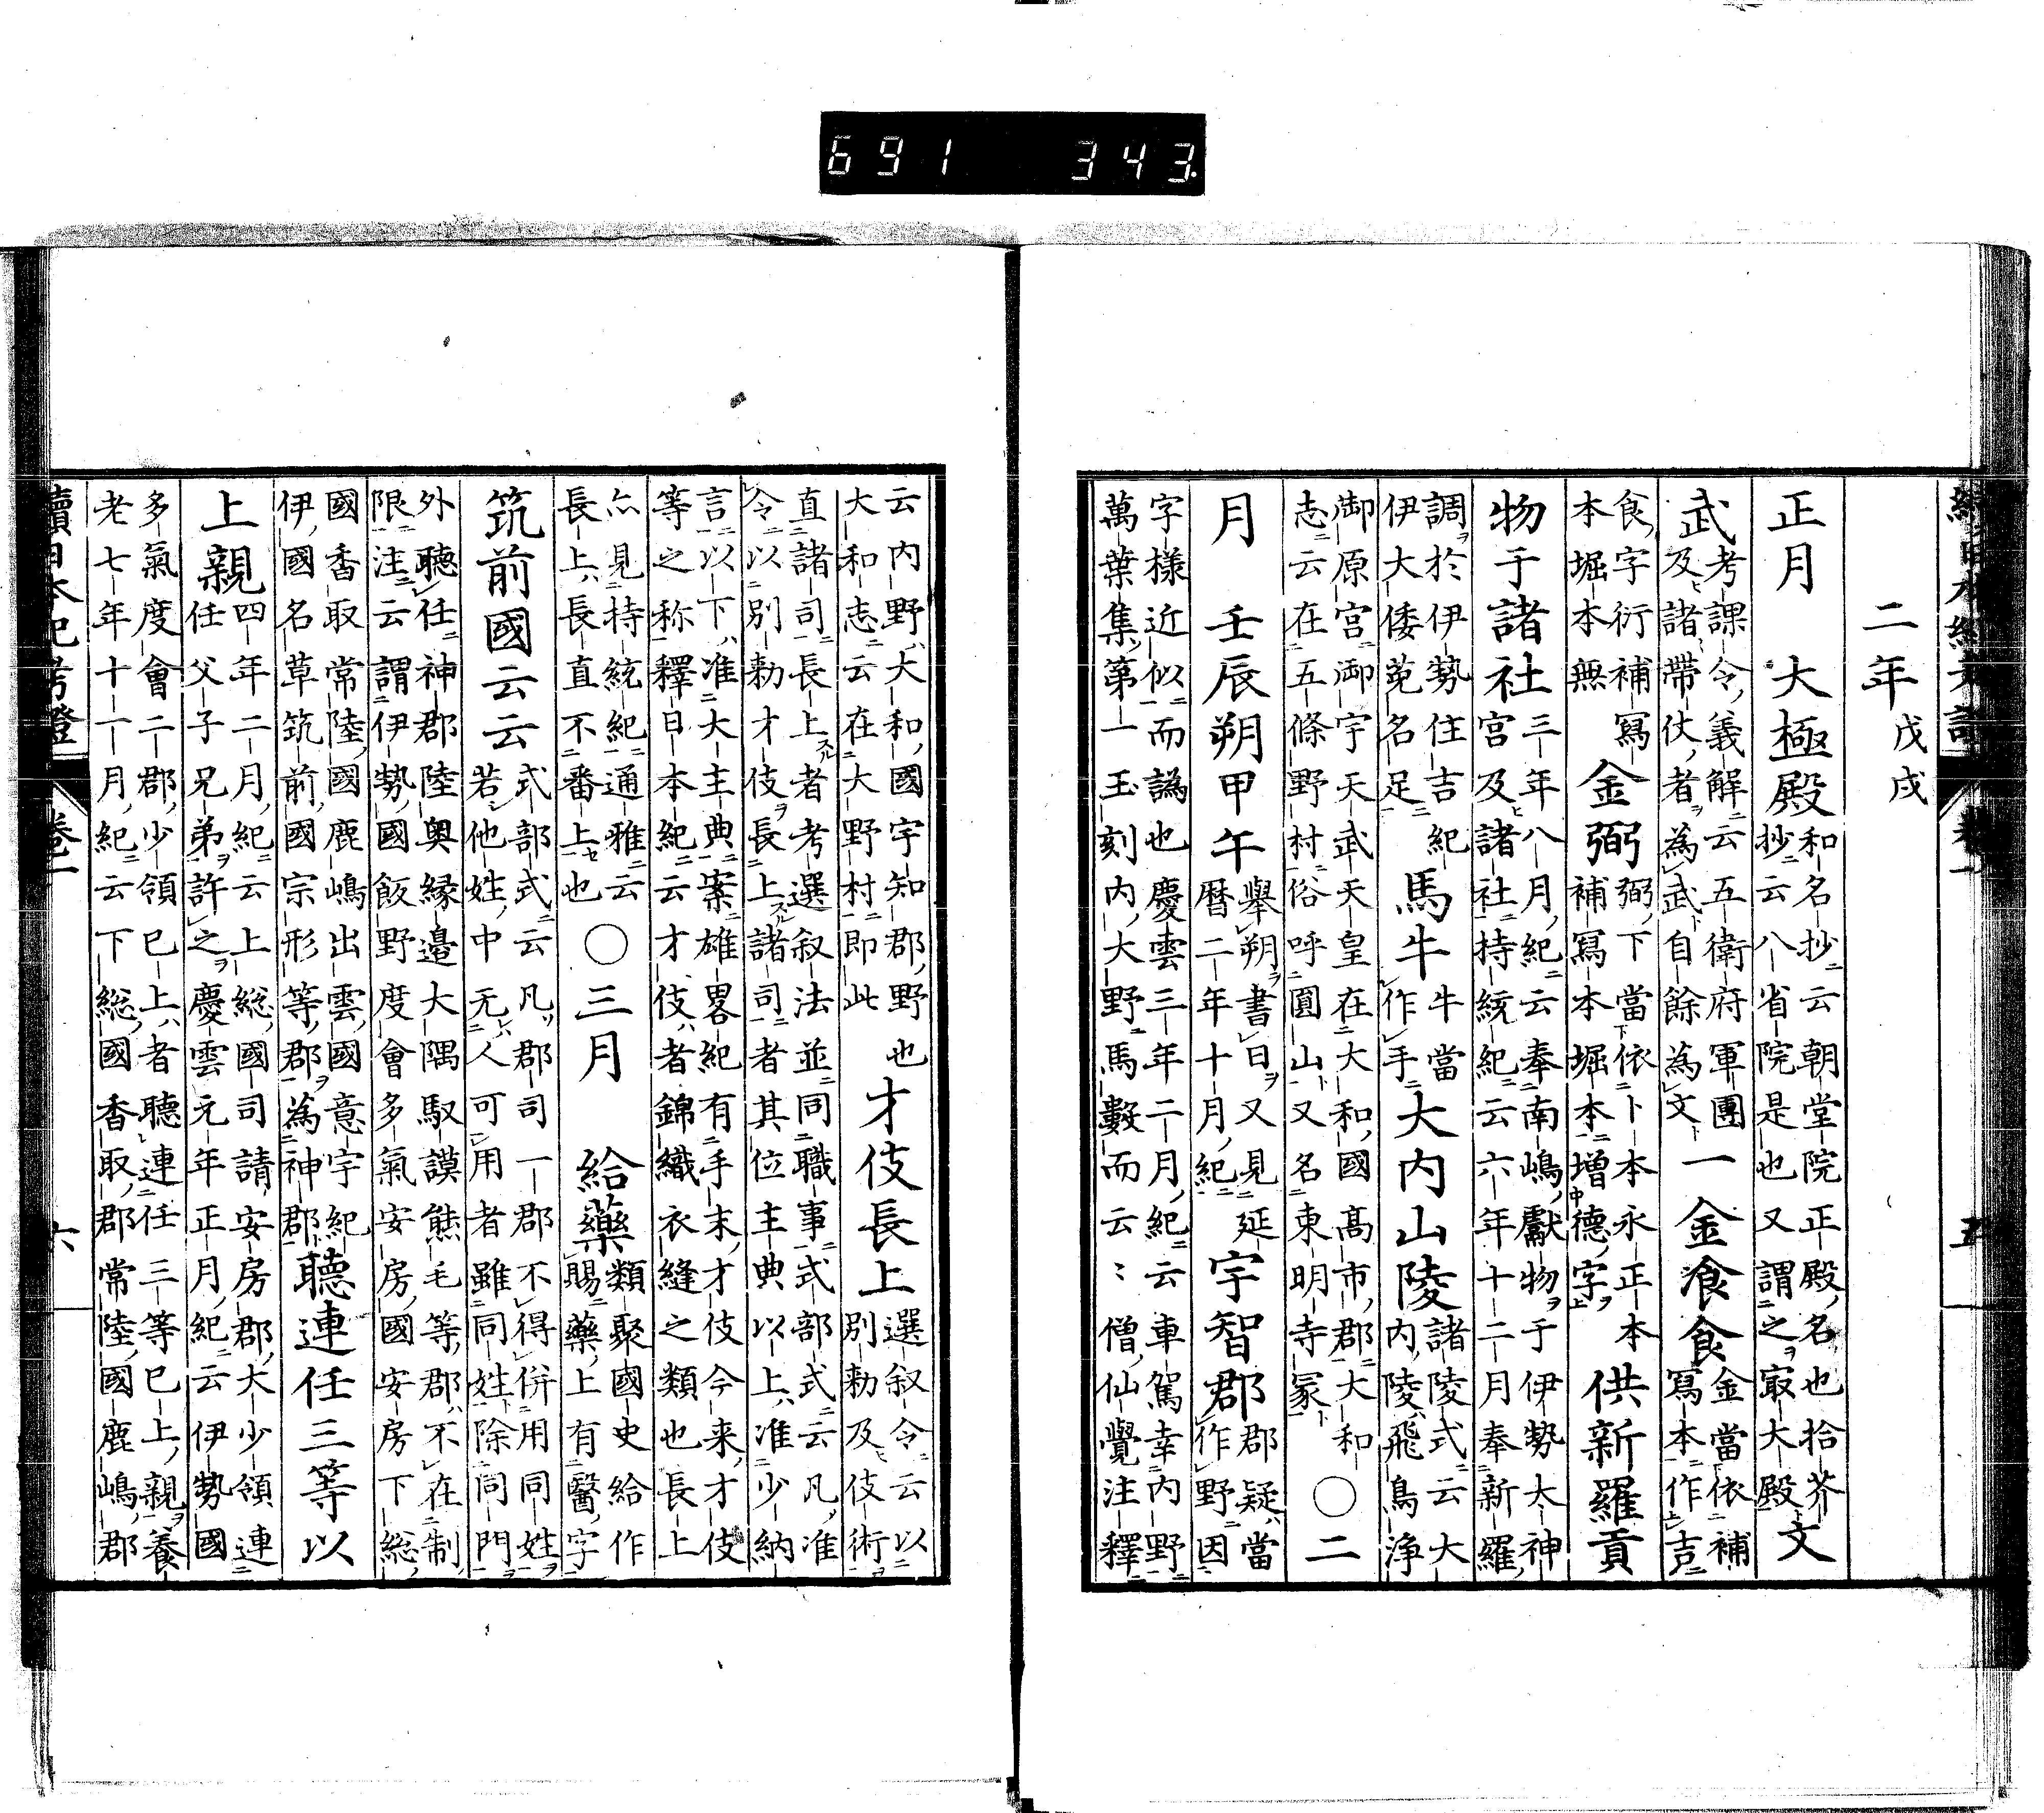 691 343
續日本紀考證 卷一 五
二年戊戌
正月 大極殿 和名抄云朝堂院正殿名也拾芥
抄云八省院是也又謂之㝡大殿 文
武 考課令義解云五衛府軍團
及諸帶仗者為武自餘為文 一金飡食 金當依補
寫本作吉
食字衍補寫
本堀本無 金弼 弼下當依卜本永正本
補寫本堀本増德字 供新羅貢
物于諸社 三年八月紀云奉南嶋獻物于伊勢大神
宮及諸社持統紀云六年十二月奉新羅
調於伊勢住吉紀
伊大倭菟名足 馬牛 牛當
作手 大内山陵 諸陵式云大
内陵飛鳥浄
御原宮御宇天武天皇在大和國髙市郡大和
志云在五條野村俗呼圓山又名東明寺冢 ○二
月 壬辰朔甲午 擧朔書日又見延
暦二年十月紀 宇智郡 郡疑當
作野因
字様近似而譌也慶雲三年二月紀云車駕幸内野
萬葉集第一玉刻内大野馬數而云〻僧仙覺注釋
云内野大和國宇知郡野也
大和志云在大野村即此 才伎長上 選叙令云以
別勅及伎術
直諸司長上者考選叙法並同職事式部式云凡准
令以別勅才伎長上諸司者其位主典以上准少納
言以下准大主典案雄畧紀有手末才伎今来才伎
等之称釋日本紀云才伎者錦織衣縫之類也長上
亦見持統紀通雅云
長上長直不番上也 ○三月 給藥 類聚國史給作
賜藥上有醫字
筑前國云云 式部式云凡郡司一郡不得併用同姓
若他姓中无人可用者雖同姓除同門
外聽任神郡陸奥縁邊大隅馭謨熊毛等郡不在制
限注云謂伊勢國飯野度會多氣安房國安房下総
國香取常陸國鹿嶋出雲國意宇紀
伊國名草筑前國宗形等郡為神郡 聽連任三等以
上親 四年二月紀云上総國司請安房郡大少領連
任父子兄弟許之慶雲元年正月紀云伊勢國
多氣度會二郡少領已上者聽連任三等已上親養
老七年十一月紀云下総國香取郡常陸國鹿嶋郡
續日本紀考證 卷一 六